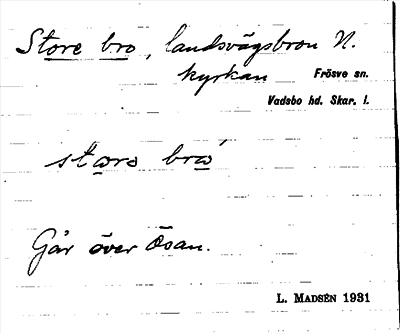 Store bro, landsvägsbron N.
kyrkan Frösve sn.
Vadsbo hd. Skar. l.
stora brώ
Går över Ösan.
L. MADSÉN 1931